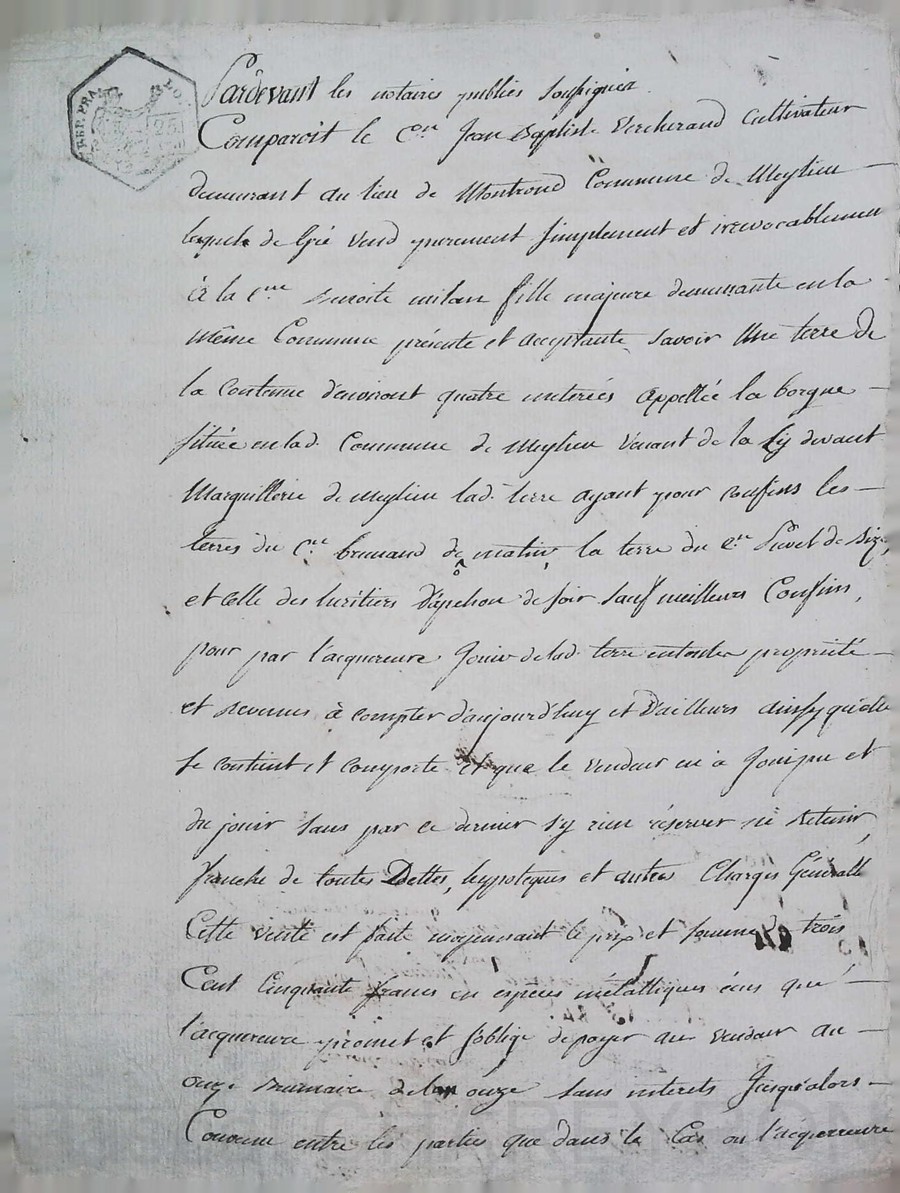 Pardevant les notaires publics soussignés
Comparoit le Cen Jean Baptiste Vercherand Cultivateur
demeurant au lieu de Montrond Commune de Meylieu
lequel de Gré vend purement simplement et irrevocablement
à la Cne Benoite milan fille majeure demeurante en la
même Commune présente et acceptante Savoir Une terre de
la contenue d'environ quatre meterés appellée la borgne
située en lad. Commune de Meylieu venant de la Cy devant
Marguillerie de meylieu lad. terre ayant pour confins les
terres du Cen brunand de matin, la terre du Cen de bize,
et celle des heritiers D'apchon de soir Sauf meilleurs Confins,
pour par l'acquereure Jouir de lad. terre en toute propriété
et revenus à compter d'aujourd'huy et D'ailleurs ainsy qu'elle
se contient et comporte et que le vendeur en a Joui pu et
du jouir sans par ce dernier s'y rien réserver ni retenir,
franche de toutes Dettes, hypoteques et autres Charges Générallt
Cette vente est faite moyennant le prix et somme de trois
Cent Cinquante francs en espèces métalliques écus que
l'acquereure promet et s'oblige de payer au vendeur au
onze brumaire de l'an onze sans interets Jusqu'alors
Convenu entre les parties que dans le Cas ou l'acquerreure
25